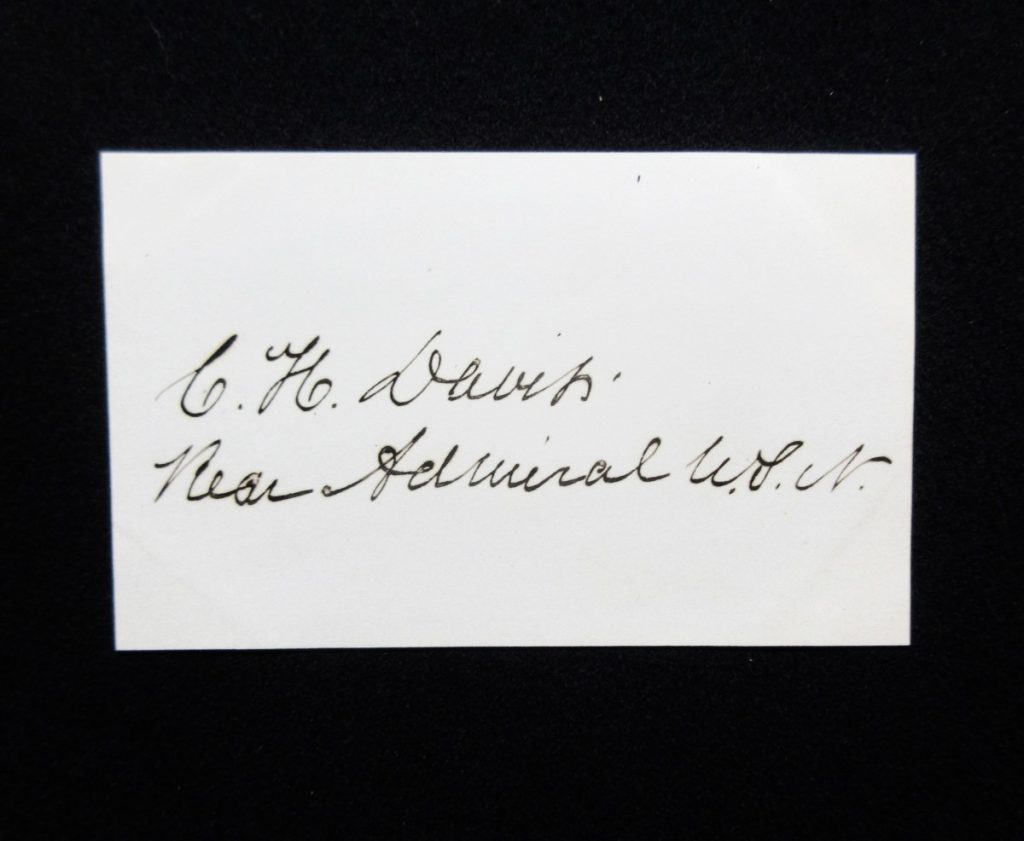 C. H. Davis.
Rear Admiral U.S.N.